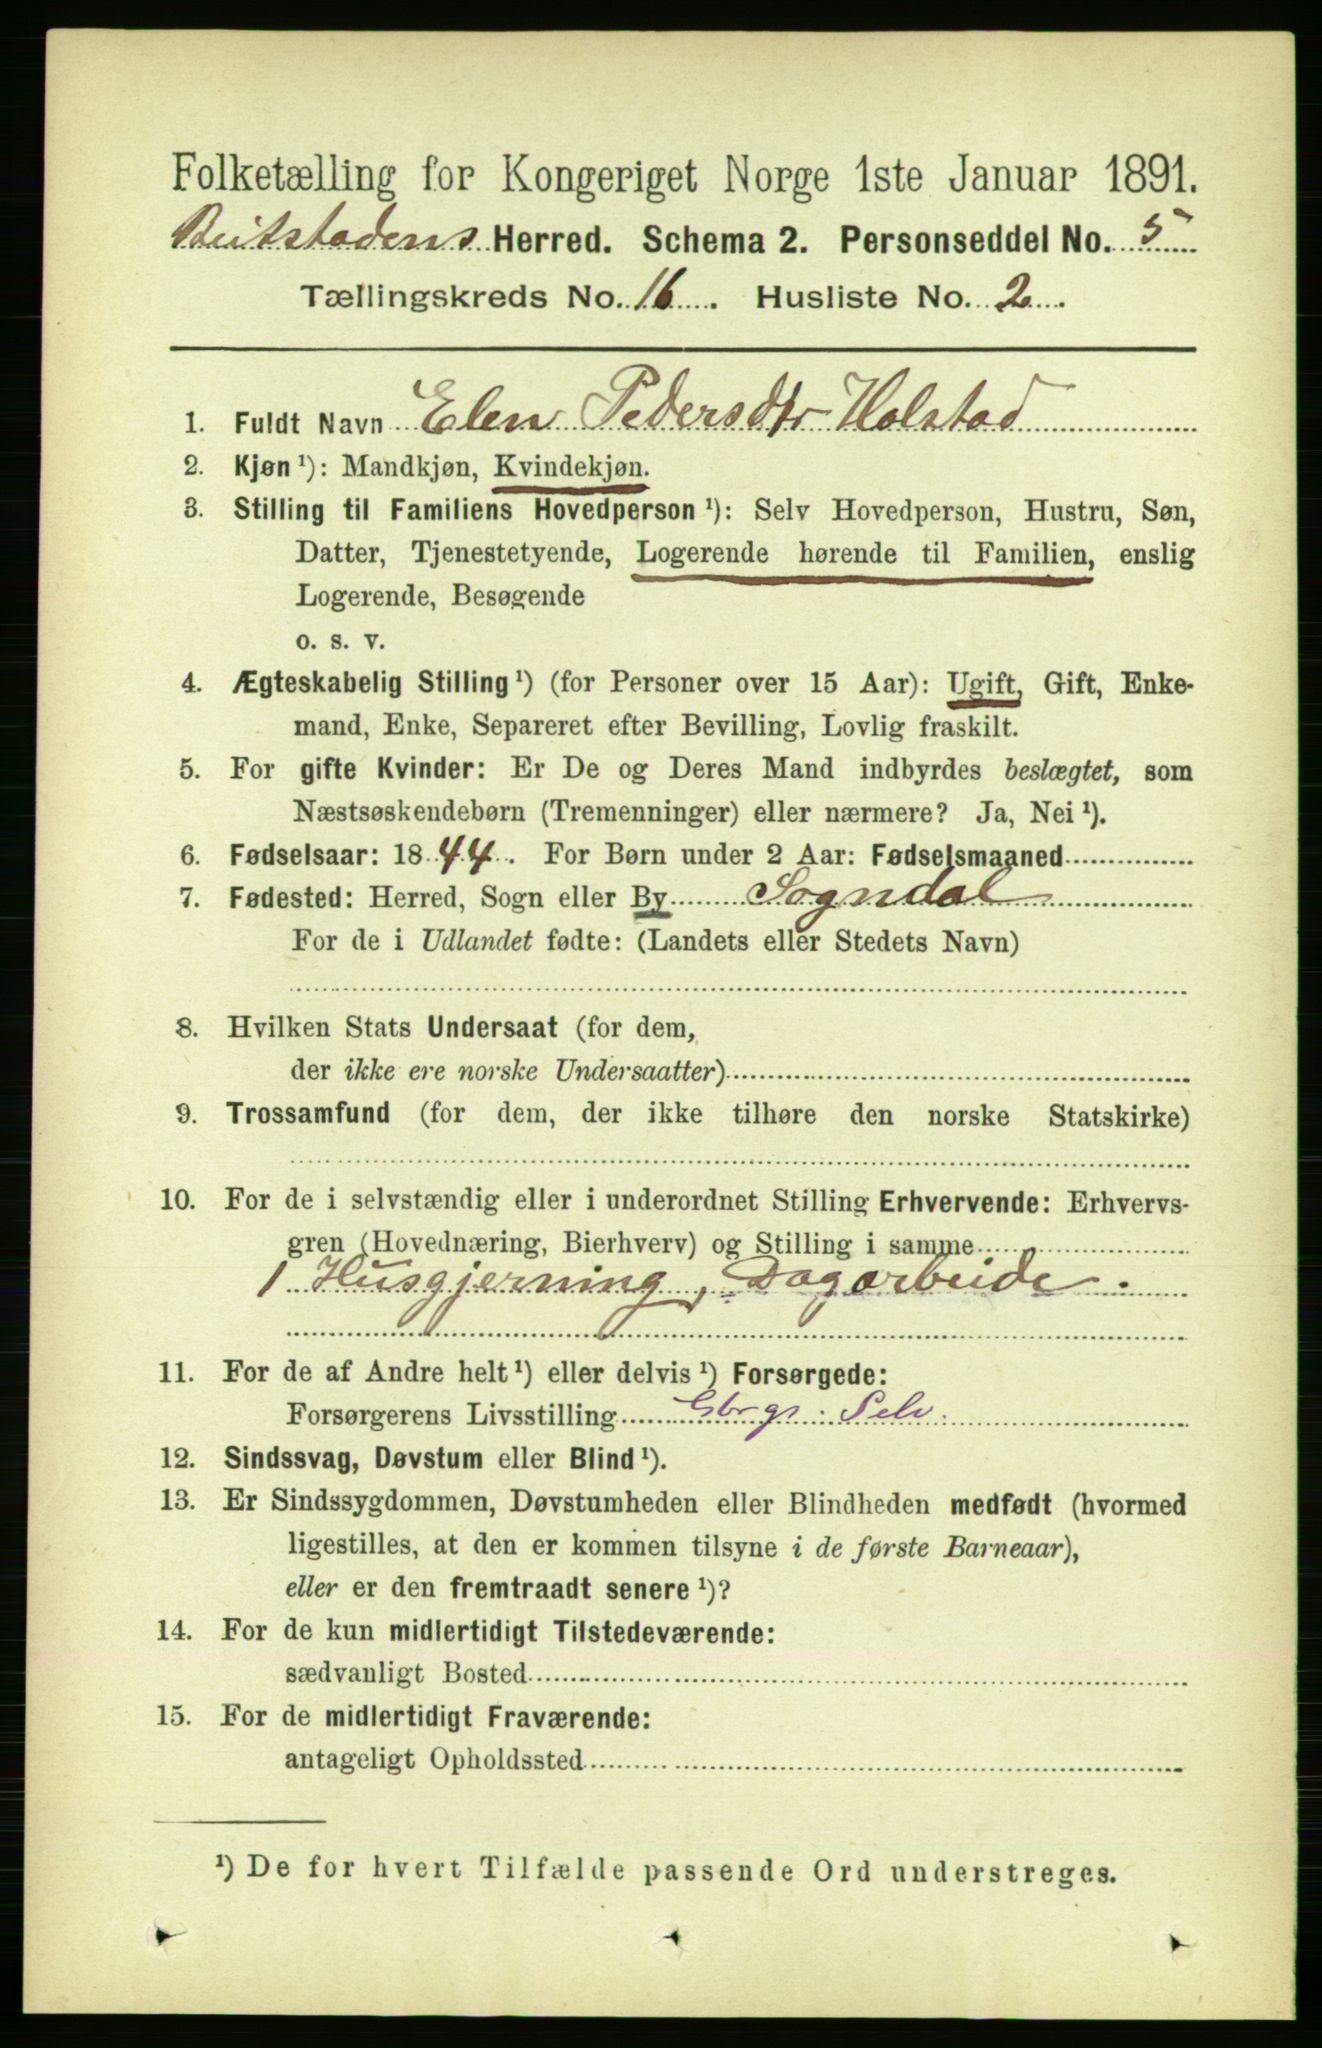 Folketælling for Kongeriget Norge 1ste Januar 1891.
Beitstadens Herred. Schema 2. Personseddel No. 5
Tællingskreds No. 16. Husliste No. 2.
1. Fuldt Navn Elen Pedersdtr Holstad
2. Kjøn ¹): Mandkjøn, Kvindekjøn.
3. Stilling til Familiens Hovedperson ¹): Selv Hovedperson, Hustru, Søn,
Datter, Tjenestetyende, Logerende hørende til Familien, enslig
Logerende, Besøgende
o. s. v.
4. Ægteskabelig Stilling ¹) (for Personer over 15 Aar): Ugift, Gift, Enke-
mand, Enke, Separeret efter Bevilling, Lovlig fraskilt.
5. For gifte Kvinder: Er De og Deres Mand indbyrdes beslægtet, som
Næstsøskendebørn (Tremenninger) eller nærmere? Ja, Nei ¹).
6. Fødselsaar: 1844. For Børn under 2 Aar: Fødselsmaaned
7. Fødested: Herred, Sogn eller By Sogndal
For de i Udlandet fødte: (Landets eller Stedets Navn)
8. Hvilken Stats Undersaat (for dem,
der ikke ere norske Undersaatter)
9. Trossamfund (for dem, der ikke tilhøre den norske Statskirke)
10. For de i selvstændig eller i underordnet Stilling Erhvervende: Erhvervs-
gren (Hovednæring, Bierhverv) og Stilling i samme
1 Husgjerning, Dagarbeide.
11. For de af Andre helt ¹) eller delvis ¹) Forsørgede:
Forsørgerens Livsstilling Gbrgs: Selv.
12. Sindssvag, Døvstum eller Blind ¹).
13. Er Sindssygdommen, Døvstumheden eller Blindheden medfødt (hvormed
ligestilles, at den er kommen tilsyne i de første Barneaar),
eller er den fremtraadt senere ¹)?
14. For de kun midlertidigt Tilstedeværende:
sædvanligt Bosted
15. For de midlertidigt Fraværende:
antageligt Opholdssted
¹) De for hvert Tilfælde passende Ord understreges.